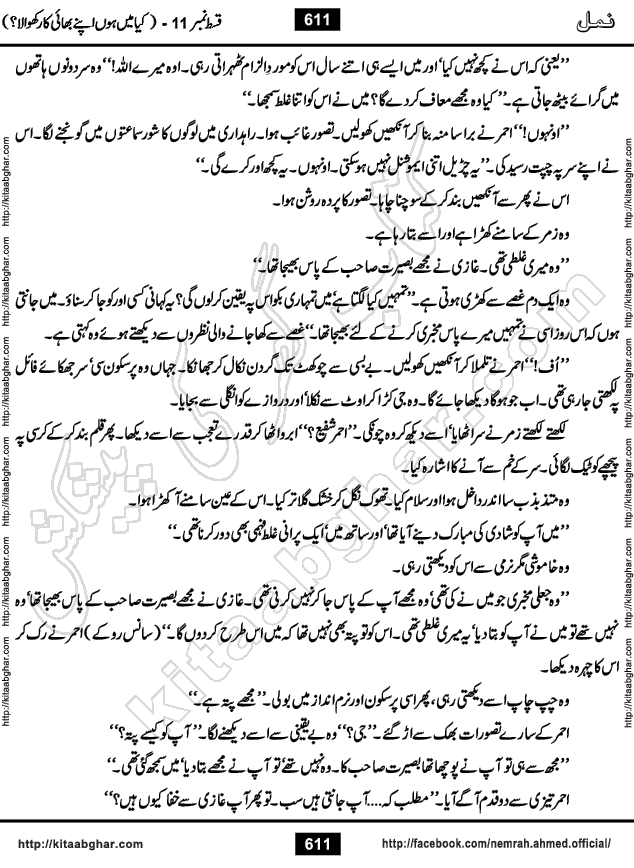 قسط نمبر 11 - ( کیا میں ہوں اپنے بھائی کا رکھوالا؟)
611
نمل
’’یعنی کہ اس نے کچھ نہیں کیا‘ اور میں ایسے ہی اتنے سال اس کو موردِ الزام ٹھہراتی رہی۔ اوہ میرے اللہ!‘‘ وہ سر دونوں ہاتھوں
میں گرائے بیٹھ جاتی ہے۔ ’’کیا وہ مجھے معاف کر دے گا؟ میں نے اس کو اتنا غلط سمجھا۔‘‘
’’اونہوں!‘‘ احمر نے برا سامنہ بنا کر آنکھیں کھولیں۔ تصور غائب ہوا۔ راہداری میں لوگوں کا شور سماعتوں میں گونجنے لگا۔ اس
نے اپنے سر پہ چپت رسید کی۔ ’’یہ چڑیل اتنی ایموشنل نہیں ہو سکتی۔ اونہوں۔ یہ کچھ اور کرے گی۔‘‘
اس نے پھر سے آنکھیں بند کر کے سوچنا چاہا۔ تصور کا پردہ روشن ہوا۔
وہ زمر کے سامنے کھڑا ہے اور اسے بتا رہا ہے۔
’’وہ میری غلطی تھی۔ غازی نے مجھے بصیرت صاحب کے پاس بھیجا تھا۔‘‘
وہ ایک دم غصے سے کھڑی ہوتی ہے۔ ’’تمہیں کیا لگتا ہے‘ میں تمہاری بکواس پہ یقین کر لوں گی؟ یہ کہانی کسی اور کو جا کر سناؤ۔ میں جانتی
ہوں کہ اس روز اسی نے تمہیں میرے پاس مخبری کرنے کے لئے بھیجا تھا۔‘‘ غصے سے کھا جانے والی نظروں سے دیکھتے ہوئے وہ کہتی ہے۔
’’اُف!‘‘ احمر نے تلملا کر آنکھیں کھولیں۔ بے بسی سے چوکھٹ تک گردن نکال کر جھانکا۔ جہاں وہ پرسکون سی‘ سر جھکائے فائل
پہ لکھتی جا رہی تھی۔ اب جو ہو گا دیکھا جائے گا۔ وہ جی کڑا کر اوٹ سے نکلا‘ اور دروازے کو انگلی سے بجایا۔
لکھتے لکھتے زمر نے سر اٹھایا‘ اسے دیکھ کر وہ چونکی۔ ’’احمر شفیع؟‘‘ ابرو اٹھا کر قدرے تعجب سے اسے دیکھا۔ پھر قلم بند کر کے کرسی پہ
پیچھے کو ٹیک لگائی۔ سر کے خم سے آنے کا اشارہ کیا۔
وہ متذبذب سا اندر داخل ہوا اور سلام کیا۔ تھوک نگل کر خشک گلا تر کیا۔ اس کے عین سامنے آ کھڑا ہوا۔
’’میں آپ کو شادی کی مبارک دینے آیا تھا‘ اور ساتھ میں‘ ایک پرانی غلط فہمی بھی دور کرنا تھی۔‘‘
وہ خاموشی مگر نرمی سے اس کو دیکھتی رہی۔
’’وہ جعلی مخبری جو میں نے کی تھی‘ وہ مجھے آپ کے پاس جا کر نہیں کرنی تھی۔ غازی نے مجھے بصیرت صاحب کے پاس بھیجا تھا‘ وہ
نہیں تھے تو میں نے آپ کو بتا دیا‘ یہ میری غلطی تھی۔ اس کو تو پتہ بھی نہیں تھا کہ میں اس طرح کر دوں گا۔‘‘ (سانس روکے) احمر نے رک کر
اس کا چہرہ دیکھا۔
وہ چپ چاپ اسے دیکھتی رہی‘ پھر اسی پرسکون اور نرم انداز میں بولی۔ ’’مجھے پتہ ہے۔‘‘
احمر کے سارے تصورات بھک سے اڑ گئے۔ ’’جی؟‘‘ وہ بے یقینی سے اسے دیکھنے لگا۔ ’’آپ کو کیسے پتہ؟‘‘
’’مجھ سے ہی تو آپ نے پوچھا تھا بصیرت صاحب کا۔ وہ نہیں تھے‘ تو آپ نے مجھے بتا دیا‘ میں سمجھ گئی تھی۔‘‘
احمر تیزی سے دو قدم آگے آیا۔ ’’مطلب کہ.... آپ جانتی ہیں سب۔ تو پھر آپ غازی سے خفا کیوں ہیں؟‘‘
http://kitaabghar.com
http://kitaabghar.com
http://kitaabghar.com
http://kitaabghar.com
http://kitaabghar.com
http://kitaabghar.com
http://kitaabghar.com
http://kitaabghar.com
http://kitaabghar.com
http://kitaabghar.com
http://kitaabghar.com
http://kitaabghar.com
کتاب گھر کی پیشکش
kitaabghar.com
http://kitaabghar.com
611
http://facebook.com/nemrah.ahmed.official/